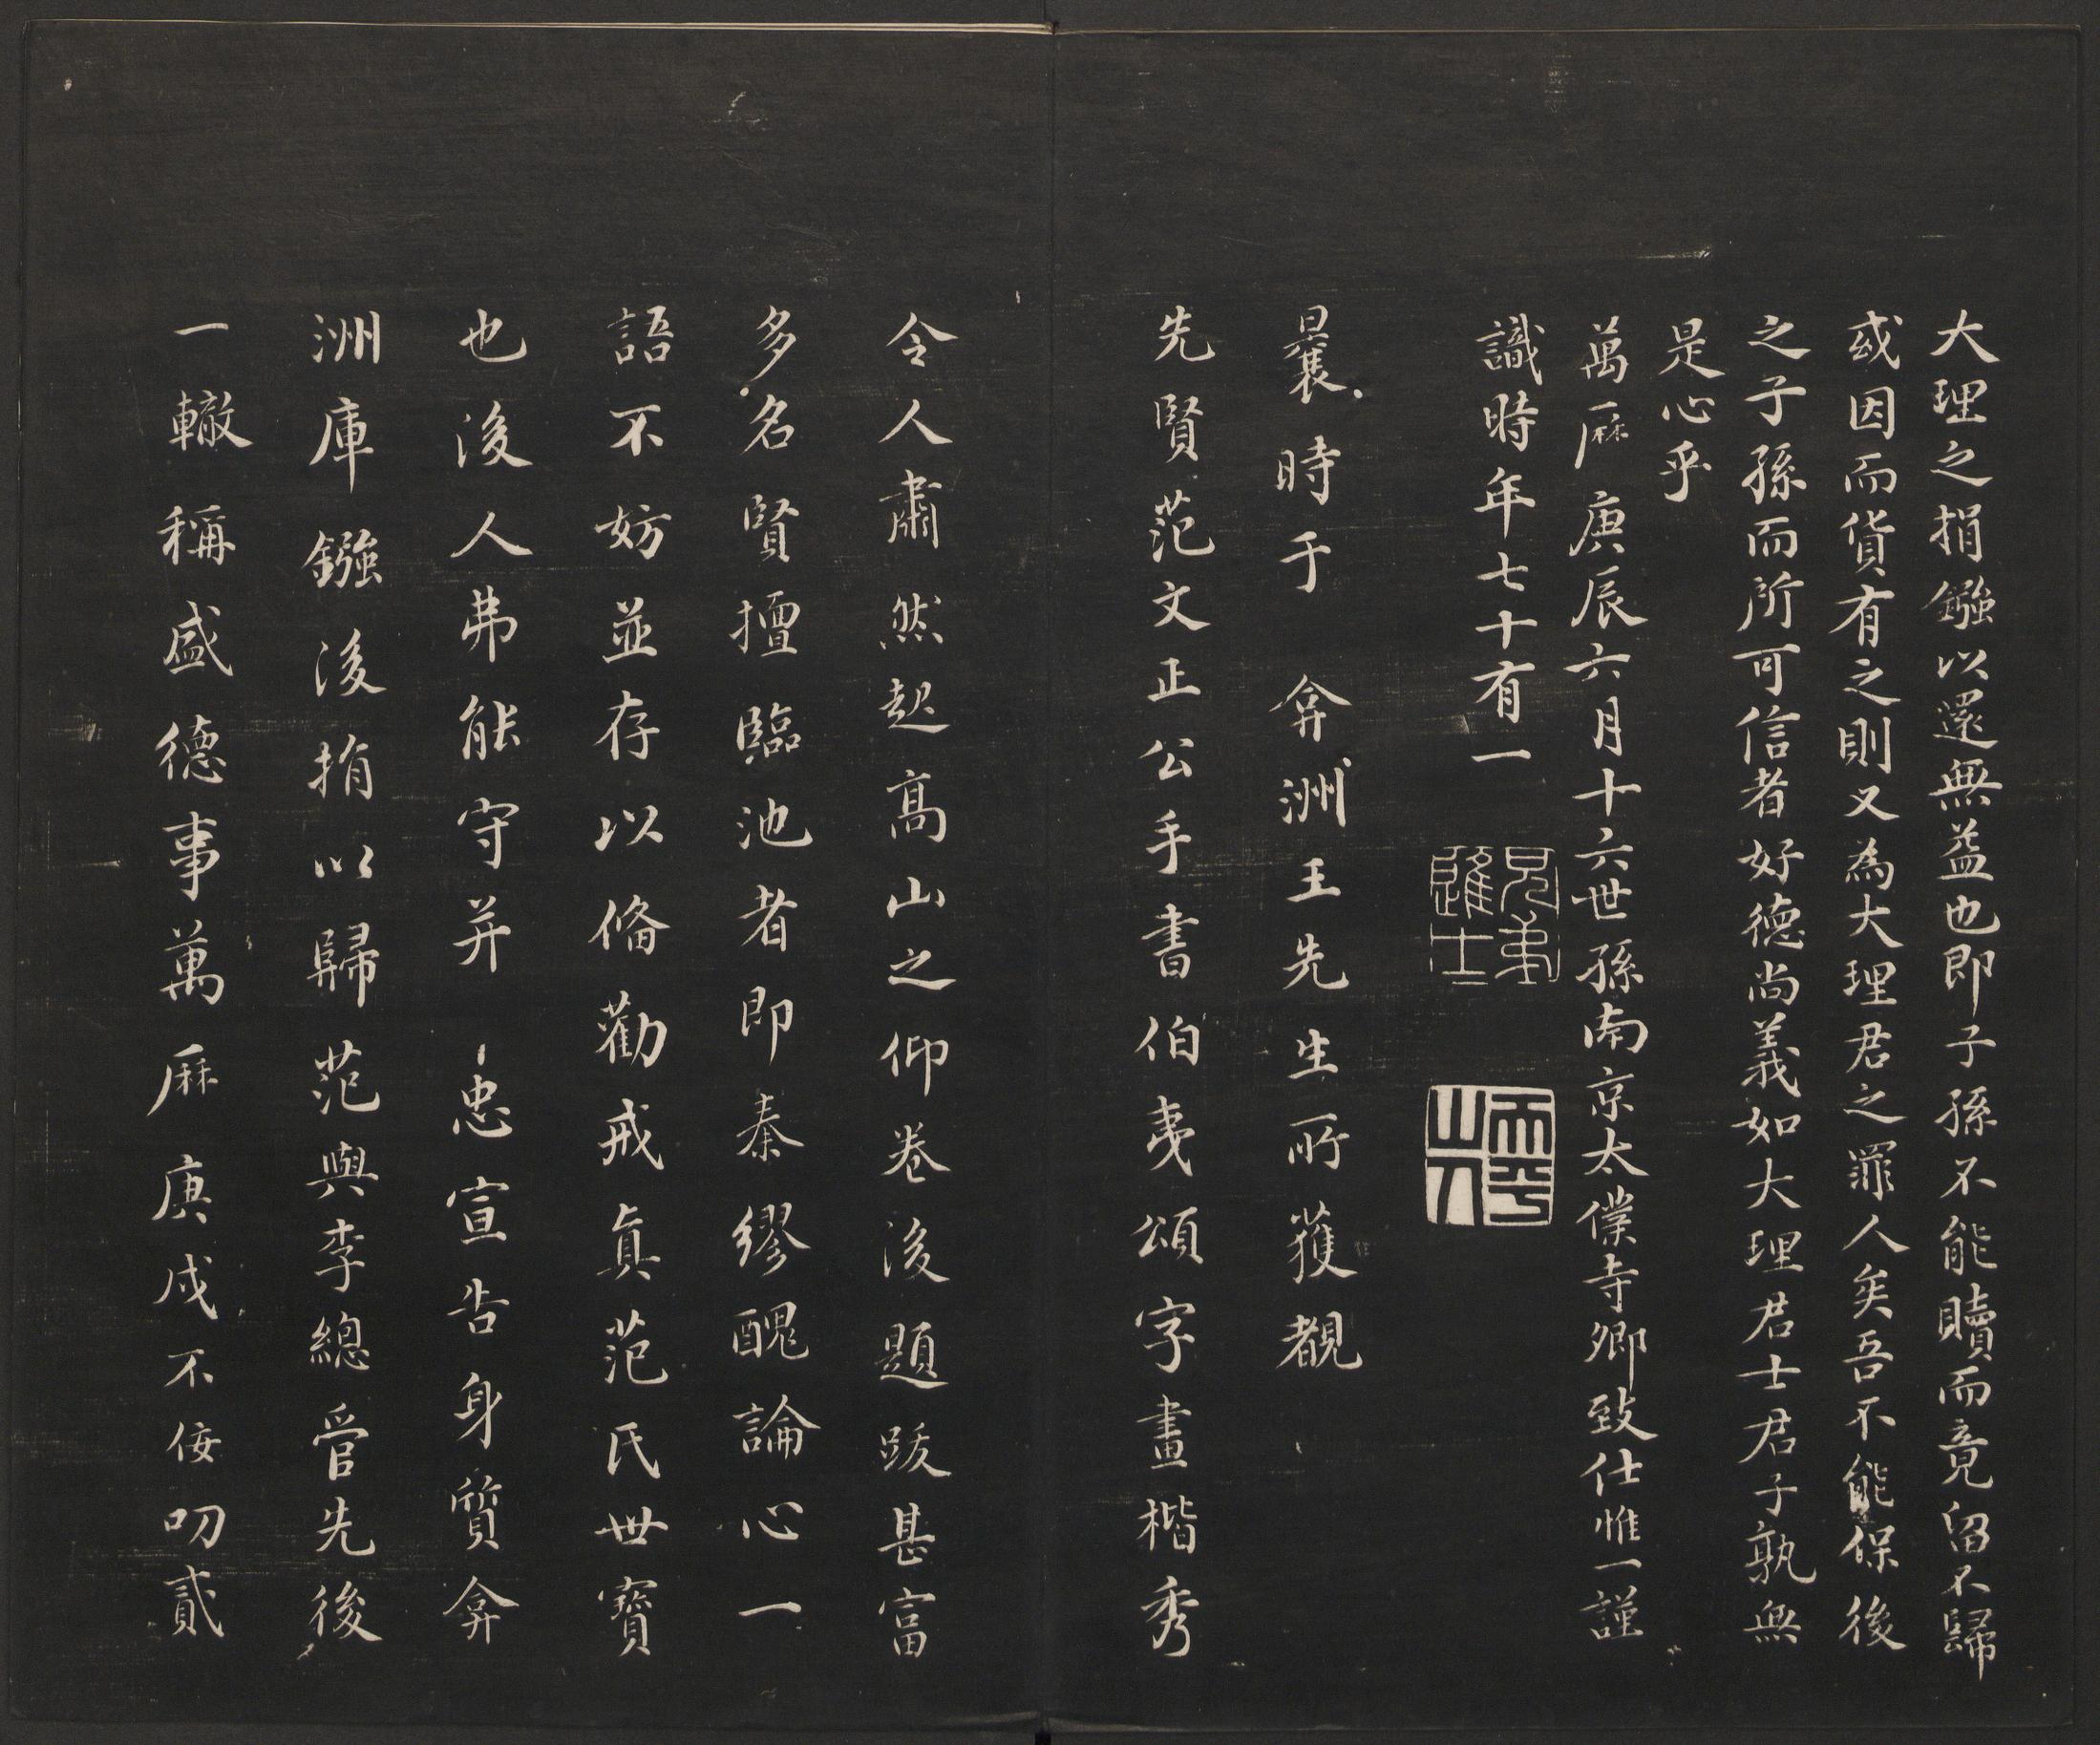 大理之捐鏹以還無益也即子孫不能贖而竟留不歸
或因而貨有之則又為大理君之罪人矣吾不能保後
之子孫而所可信者好德尚義如大理君士君子孰無
是心乎
萬曆庚辰六月十六世孫南京太僕寺卿致仕惟一謹
識時年七十有一
兄弟進士
曩時于 弇洲王先生所獲覩
先賢范文正公手書伯夷頌字畫楷秀
令人肅然起高山之仰卷後題跋甚富
多名賢擅臨池者即秦繆醜論心一
語不妨並存以俻勸戒真范氏世寶
也後人弗能守并 忠宣告身質弇
洲庫鏹後捐以歸范與李總管先後
一轍稱盛德事萬曆庚戌不佞叨貳